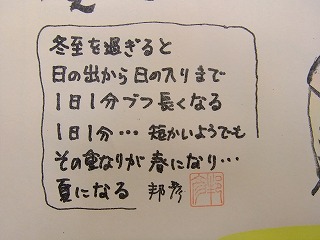 冬至を過ぎると
日の出から日の入りまで
1日1分づつ長くなる
1日1分…短かいようでも
その重なりが春になり…
夏になる 邦彦